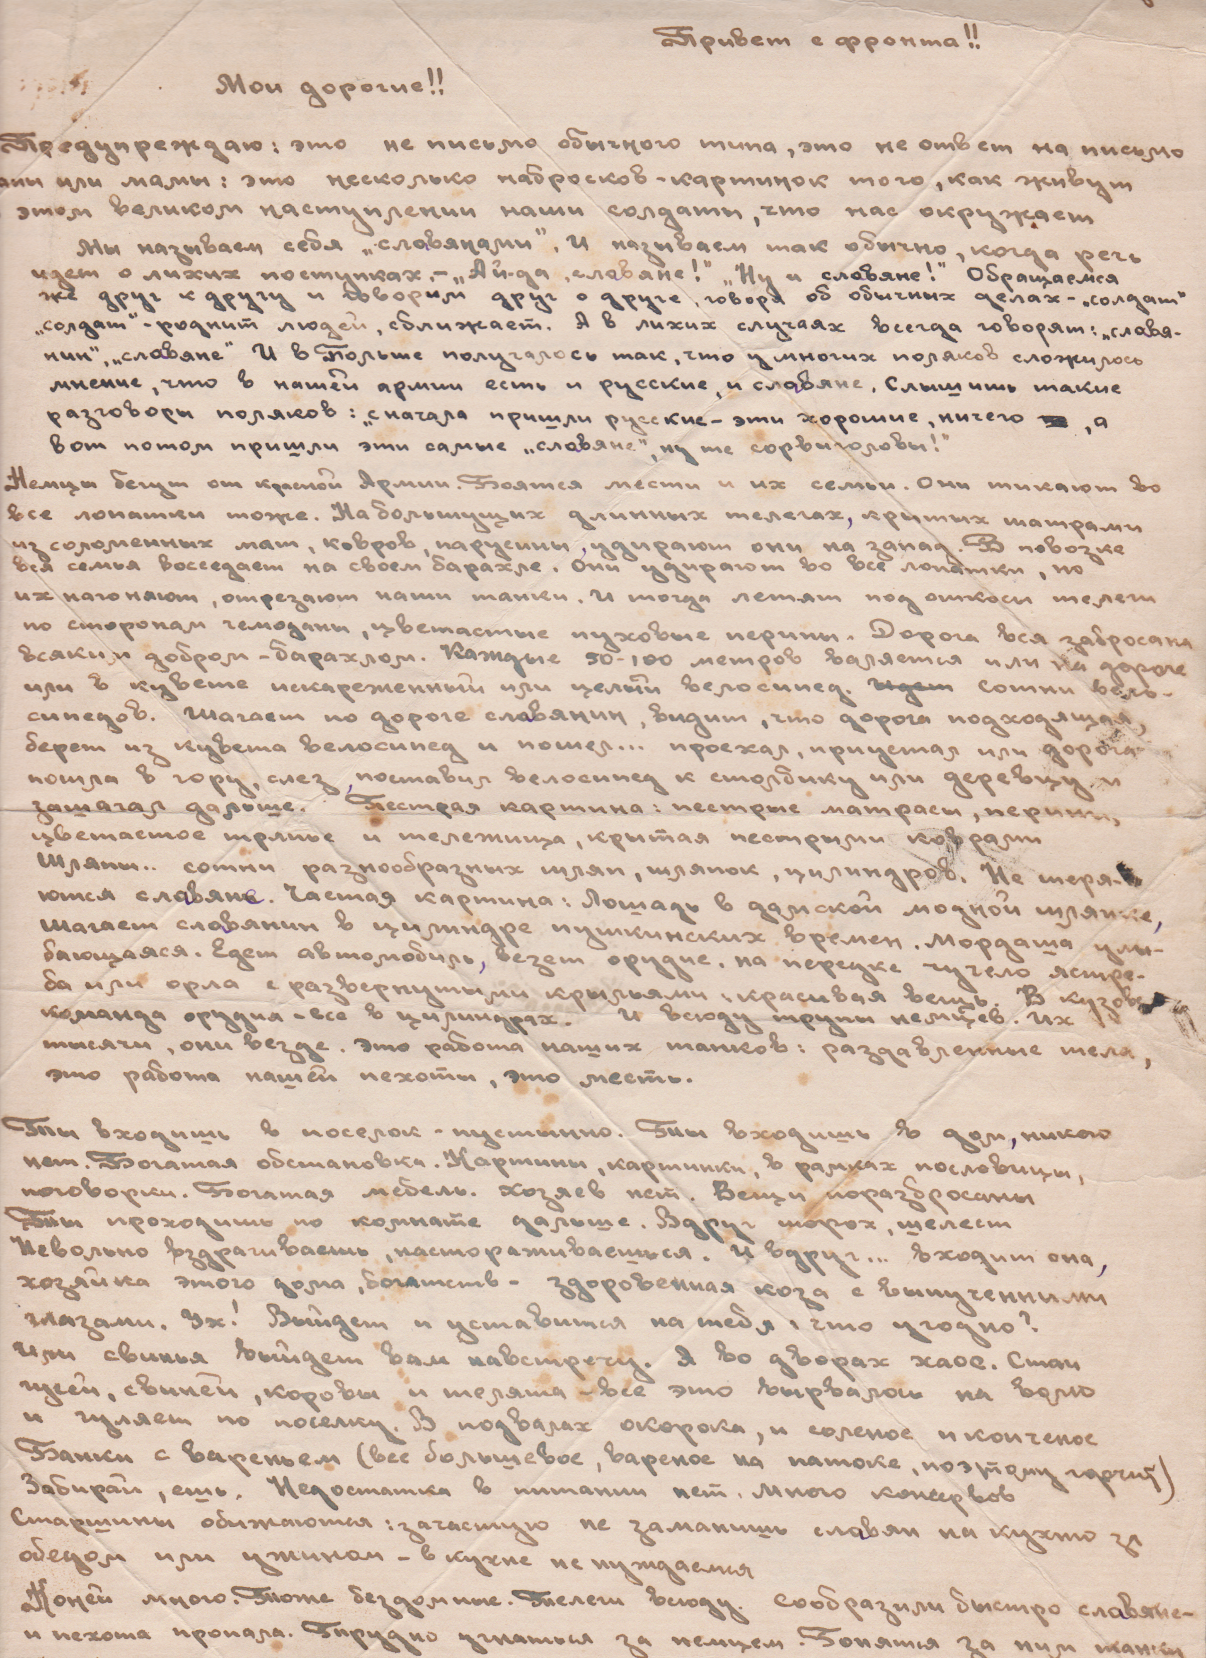 Привет с фронта!!
Мои дорогие!!
Предупреждаю: это не письмо обычного типа, это не ответ на письмо
апы или мамы: это несколько набросков-картинок того, как живут
этом великом наступлении наши солдаты, что нас окружает
Мы называем себя „славянами". И называем так обычно, когда речь
идет о лихих поступках. – „Ай-да, славяне!" „Ну и славяне!" Обращаемся
же друг к другу и говорим друг о друге, говоря об обычных делах – „солдат"
„солдат" – роднит людей, сближает. А в лихих случаях всегда говорят: „славя-
нин", „славяне" И в Польше получалось так, что у многих поляков сложилось
мнение, что в нашей армии есть и русские, и славяне. Слышишь такие
разговоры поляков: „сначала пришли русские – эти хорошие, ничего , а
вот потом пришли эти самые „славяне", ну те сорвиголовы!"
Немцы бегут от красной Армии. Боятся мести и их семьи. Они тикают во
все лопатки тоже. На большущих длинных телегах, крытых шатрами
из соломенных мат, ковров, парусины, удирают они на запад. В повозке
вся семья восседает на своем барахле. Они удирают во все лопатки, но
их нагоняют, отрезают наши танки. И тогда летят под откосы телеги
по сторонам чемоданы, цветастые пуховые перины. Дорога вся забросана
всяким добром – барахлом. Каждые 50-100 метров валяется или на дороге
или в кювете искареженный или целый велосипед. Идет Сотни вело-
сипедов. Шагает по дороге славянин, видит, что дорога подходящая,
берет из кювета велосипед и пошел... проехал, приустал или дорога
пошла в гору, слез, поставил велосипед к столбику или деревцу и
зашагал дальше. Пестрая картина: пестрые матрасы, перины,
цветастое тряпье и тележища, крытая пестрыми коврами
Шляпы.. сотни разнообразных шляп, шляпок, цилиндров. Не теря-
ются славяне. Частая картина: Лошадь в дамской модной шляпке,
шагает славянин в цилиндре пушкинских времен. Мордаша улы-
бающаяся. Едет автомобиль, везет орудие. на передке чучело ястре-
ба или орла с развернутыми крыльями: красивая вещь. В кузове
команда орудия – все в цилиндрах. И всюду трупы немцев. Их
тысячи, они везде. Это работа наших танков: раздавленные тела,
это работа нашей пехоты, это месть.
Ты входишь в поселок – пустынно. Ты входишь в дом, никого
нет. Богатая обстановка. Картины, картинки, в рамках пословицы,
поговорки. Богатая мебель. Хозяев нет. Вещи поразбросаны
Ты проходишь по комнате дальше. Вдруг шорох, шелест
Невольно вздрагиваешь, настораживаешься. И вдруг... входит она,
хозяйка этого дома, богатств – здоровенная коза с выпученными
глазами. Ух! Выйдет и уставится на тебя: что угодно?
Или свинья выйдет вам навстречу. А во дворах хаос. Стаи
гусей, свиней, коровы и телята – все это вырвалось на волю
и гуляет по поселку. В подвалах окорока, и соленое и копченое
Банки с вареньем (все дешевое, вареное на патоке, поэтому горчит)
Забирай, ешь. Недостатка в питании нет. Много консервов
Старшины обижаются: зачастую не заманишь славян на кухню за
обедом или ужином – в кухне не нуждаемся
Коней много. Тоже бездомные. Телеги всюду. Сообразили быстро славяне –
и пехота пропала. Трудно угнаться за немцем. Гонятся за ним танки